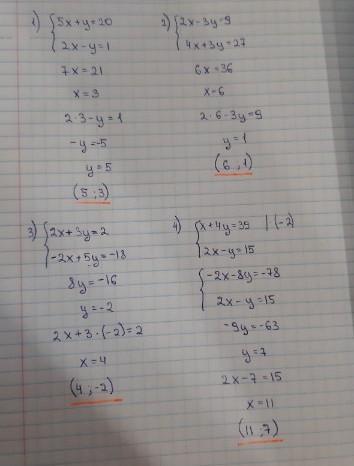 1) { 5x+y=20
2x-y=1
7x=21
x=3
2·3-y=1
-y=-5
y=5
(5;3)
2) { 2x-3y=9
4x+3y=27
6x=36
x=6
2·6-3y=9
y=1
(6;1)
3) { 2x+3y=2
-2x+5y=-18
8y=-16
y=-2
2x+3·(-2)=2
x=4
(4;-2)
4) { x+4y=39 | (-2)
2x-y=15
{ -2x-8y=-78
2x-y=15
-9y=-63
y=7
2x-7=15
x=11
(11;7)